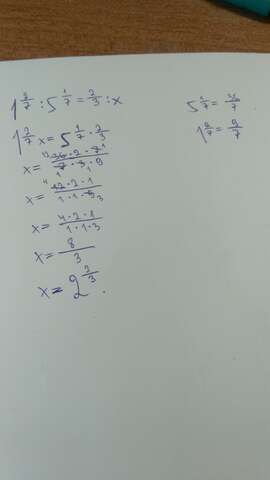 1 2/7 : 5 1/7 = 2/3 : x
5 1/7 = 36/7
1 2/7 = 9/7
1 2/7 x = 5 1/7 · 2/3
x = 36 · 2 · 7 / 7 · 3 · 9
x = 12 · 2 · 1 / 1 · 1 · 9
x = 4 · 2 · 1 / 1 · 1 · 3
x = 8 / 3
x = 2 2/3.